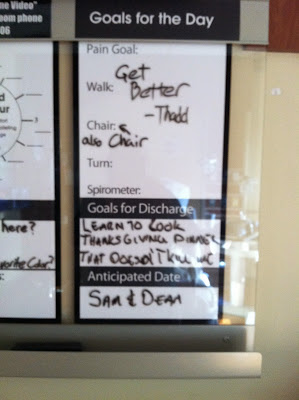 ne Video"
oom phone
06
Goals for the Day
Pain Goal:
Get
Walk: Better
-Thadd
Chair:
also Chair
Turn:
Spirometer:
Goals for Discharge
LEARN TO COOK
THANKSGIVING DINNER
THAT DOESN'T KILL ME
Anticipated Date
SAM & DEAN
here?
avorite Color?